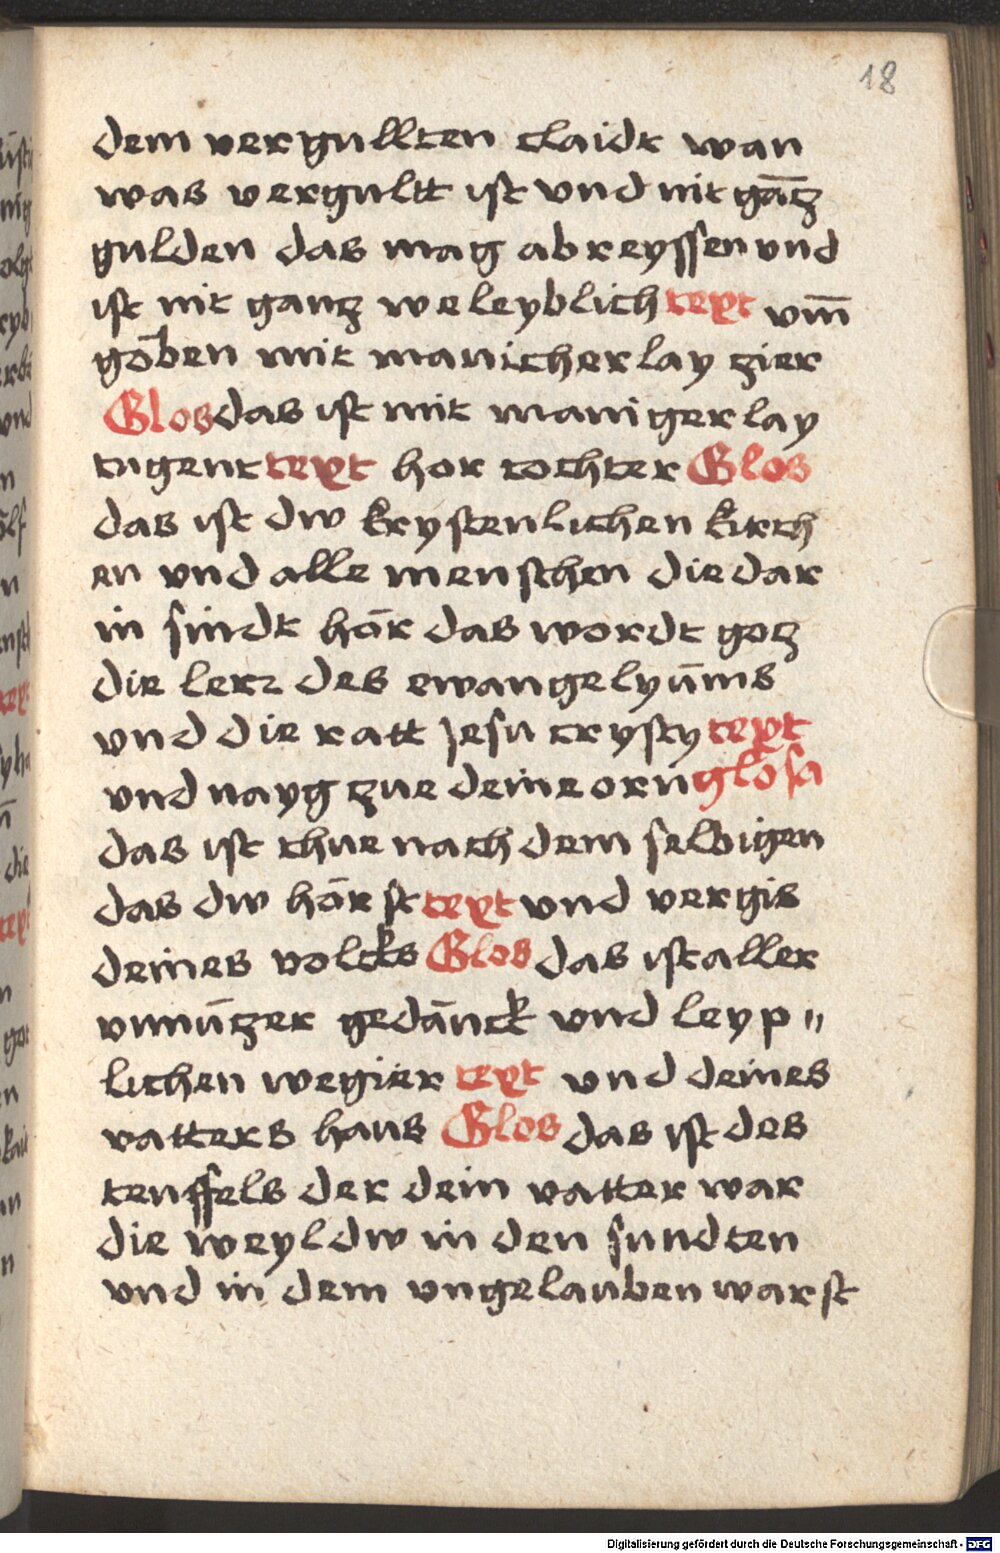 18
dem vergullten claidt wan
was vergultt ist vnd nit gācz
gulden das mag abreyssen vnd
ist nit gancz weleyblich text vm̄
goben mit manicherlay zier
Glos das ist mit manigerlay
tugent text hor tochter Glos
das ist dw krystenlichen kirch
en vnd alle menschen die dar
in sindt hōr das wordt gotz
die lerz des ewangelyūms
vnd die ratt Jesu crysty text
vnd nayg zue deine orn glosa
das ist thue nach dem selbigen
das dw hōrst text vnd vergis
deines volcks Glos das ist aller
vnnūczer gedānck vnd leyp"
lichen wegier text vnd deines
vatters haus Glos das ist des
teuffels der dein vatter war
die weyl dw in den sundten
vnd in dem vngelauben warst
Digitalisierung gefördert durch die Deutsche Forschungsgemeinschaft - DFG